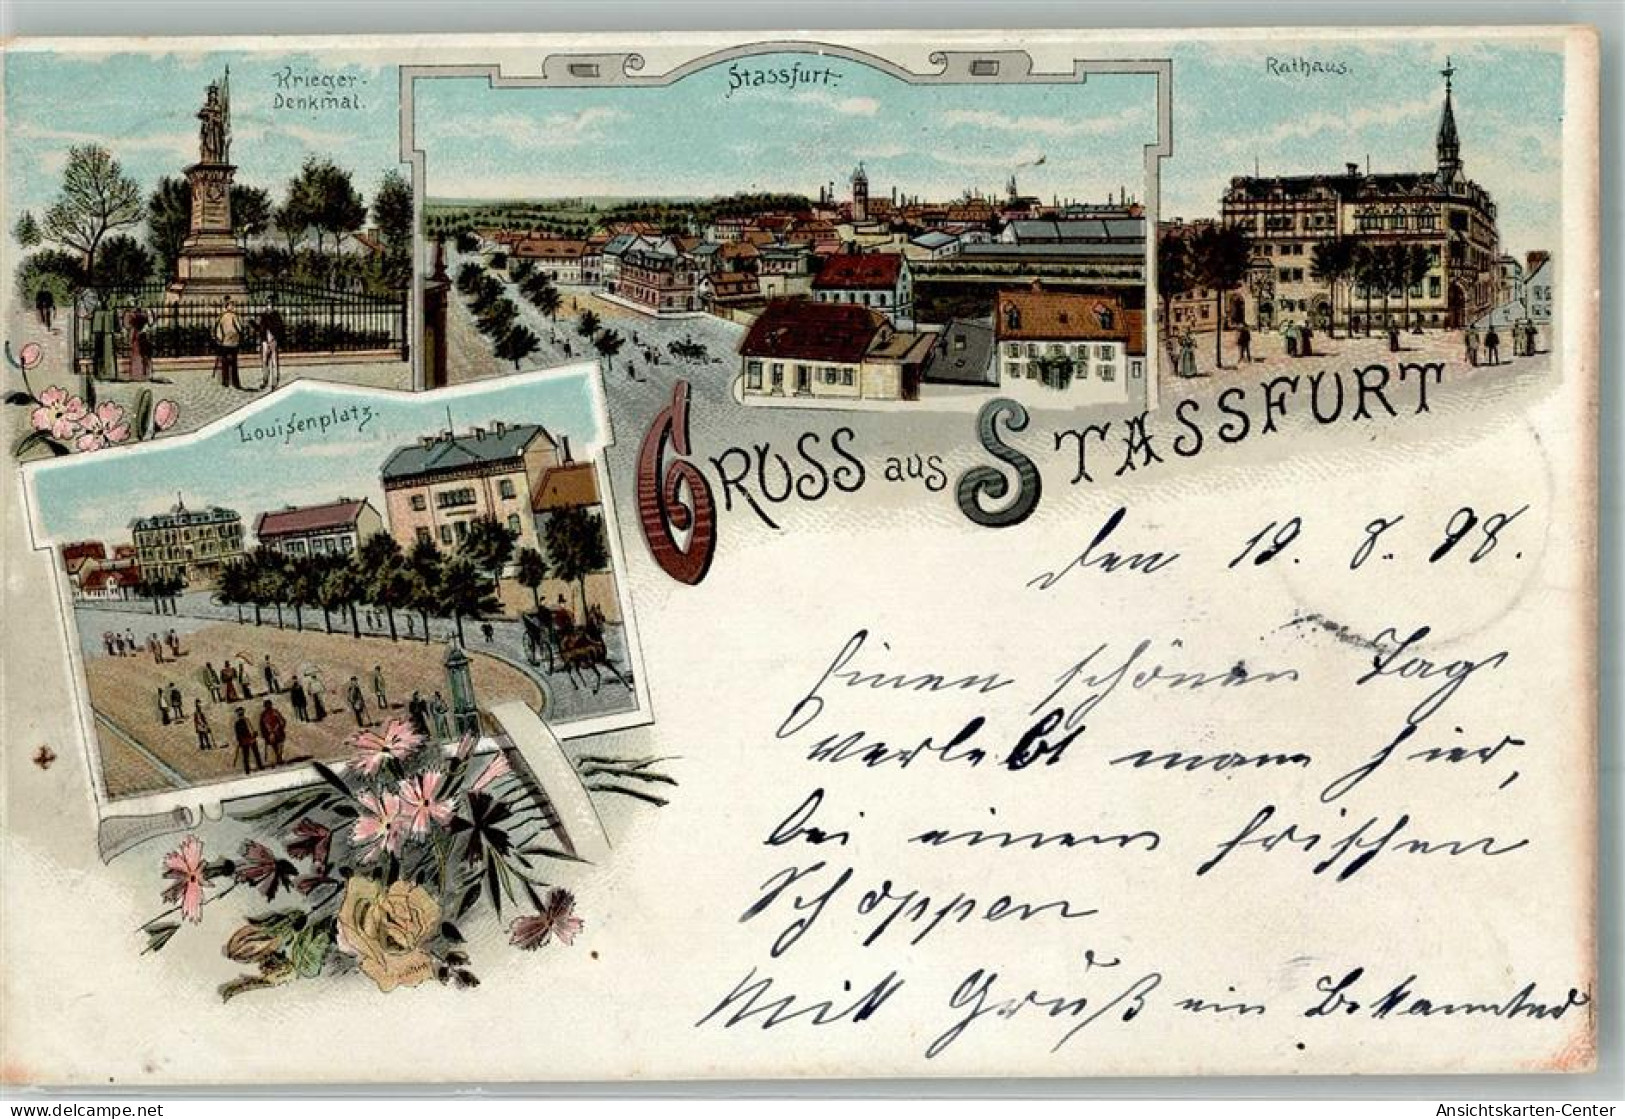 Krieger-
Denkmal.
Stassfurt.
Rathaus.
Louisenplatz.
GRUSS aus STASSFURT
den 19. 8. 98.
Einen schönen Tag
verlebt mann hier,
bei einem frischen
Schoppen
Mit Gruß ein Bekannter
Ansichtskarten-Center